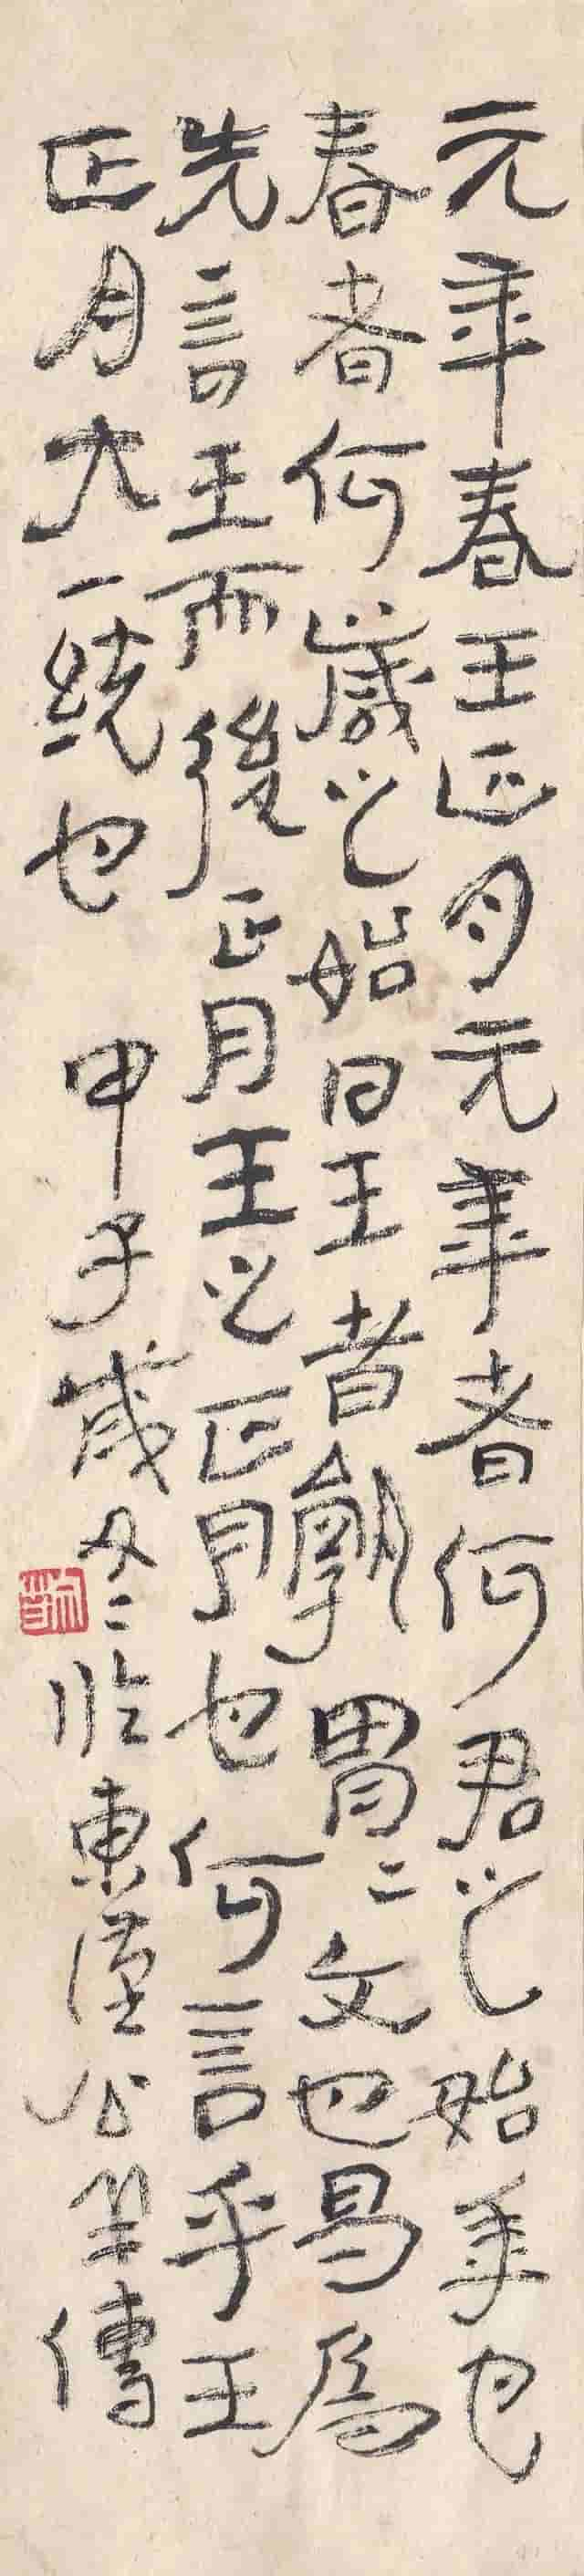 元年春王正月元年者何君之始年也
春者何歲之始日王者孰胃二文也曷爲
先言王而後正月王之正月也何言乎王
正月大一統也 甲子歲冬臨東漢公羊傳